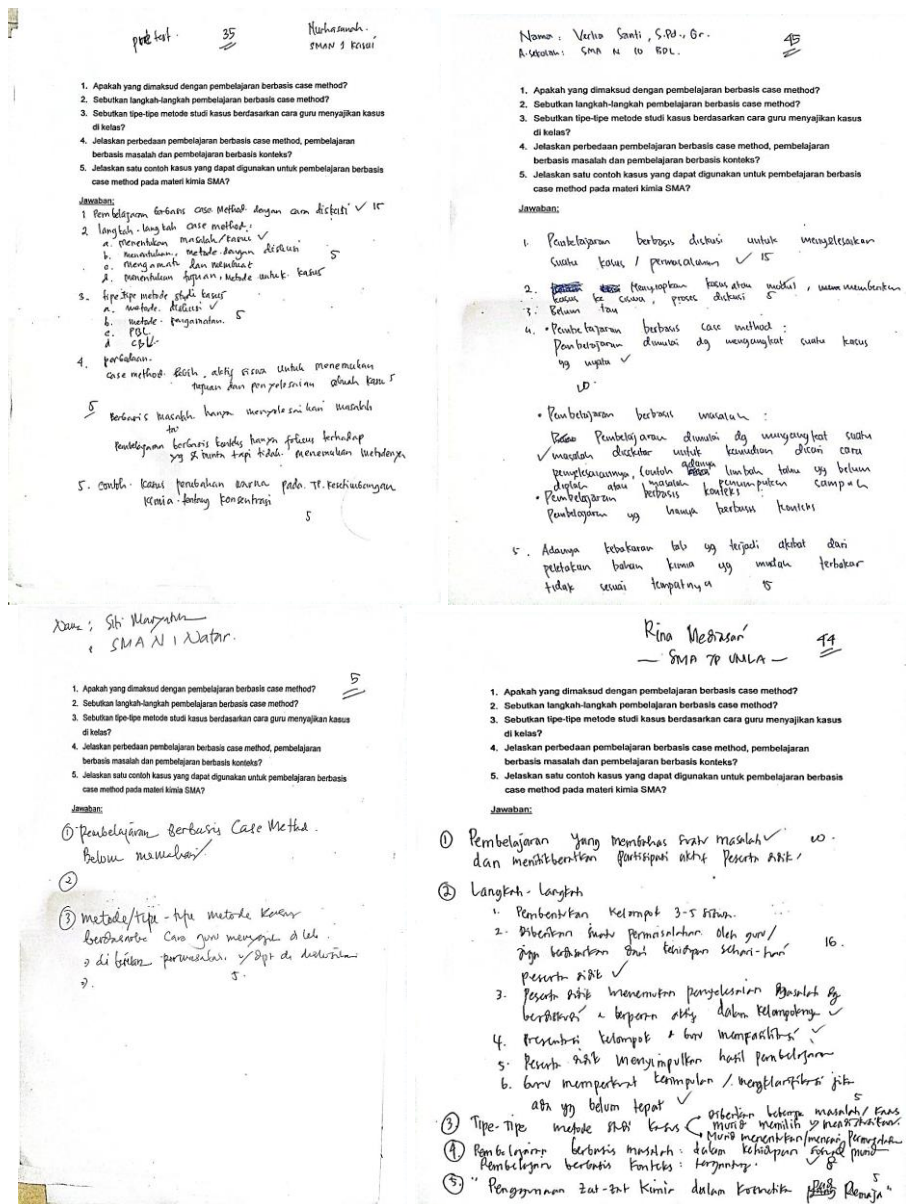 pre test
35
Nurhasanah.
SMAN 1 Kasui
1. Apakah yang dimaksud dengan pembelajaran berbasis case method?
2. Sebutkan langkah-langkah pembelajaran berbasis case method?
3. Sebutkan tipe-tipe metode studi kasus berdasarkan cara guru menyajikan kasus
di kelas?
4. Jelaskan perbedaan pembelajaran berbasis case method, pembelajaran
berbasis masalah dan pembelajaran berbasis konteks?
5. Jelaskan satu contoh kasus yang dapat digunakan untuk pembelajaran berbasis
case method pada materi kimia SMA?
Jawaban:
1 Pembelajaran berbasis case Method dengan cara diskusi ✓ 15
2 langkah-langkah case method:
a. menentukan masalah/kasus ✓
b. menentukan, metode dengan diskusi
5
c. mengamati dan membuat
d. menentukan tujuan, metode untuk kasus
3. tipe-tipe metode studi kasus
a. metode diskusi ✓
b. metode pengamatan. 5
c. PBL
d
4. perbedaan.
case method lebih aktif siswa untuk menemukan
tujuan dan penyelesaian sebuah kasus 5
5
Berbasis masalah hanya menyelesaikan masalah
Pembelajaran berbasis konteks hanya fokus terhadap
yg tapi tidak menemukan metodenya
5. contoh kasus perubahan warna pada TP. Kesetimbangan
kimia tentang konsentrasi
5
Nama : Verlia Santi, S.Pd., Gr.
A. sekolah : SMA N 10 BDL.
45
1. Apakah yang dimaksud dengan pembelajaran berbasis case method?
2. Sebutkan langkah-langkah pembelajaran berbasis case method?
3. Sebutkan tipe-tipe metode studi kasus berdasarkan cara guru menyajikan kasus
di kelas?
4. Jelaskan perbedaan pembelajaran berbasis case method, pembelajaran
berbasis masalah dan pembelajaran berbasis konteks?
5. Jelaskan satu contoh kasus yang dapat digunakan untuk pembelajaran berbasis
case method pada materi kimia SMA?
Jawaban:
1. Pembelajaran berbasis diskusi untuk menyelesaikan
suatu kasus / permasalahan ✓ 15
2. Menyiapkan kasus atau modul, memberikan
kasus ke siswa, proses diskusi 5
3. Belum tau
4. • Pembelajaran berbasis case method :
Pembelajaran dimulai dg mengangkat suatu kasus
yg nyata ✓
10
• Pembelajaran berbasis masalah :
Pembelajaran dimulai dg mengangkat suatu
✓ masalah disekitar untuk kemudian dicari cara
penyelesaiannya, Contoh adanya limbah tahu yg belum
diolah atau masalah penumpukan sampah
• Pembelajaran berbasis konteks :
Pembelajaran yg hanya berbasis konteks
5. Adanya kebakaran yg terjadi akibat dari
peletakan bahan kimia yg mudah terbakar
tidak sesuai tempatnya 15
Nama : Siti Maryatun
SMA N 1 Natar.
5
1. Apakah yang dimaksud dengan pembelajaran berbasis case method?
2. Sebutkan langkah-langkah pembelajaran berbasis case method?
3. Sebutkan tipe-tipe metode studi kasus berdasarkan cara guru menyajikan kasus
di kelas?
4. Jelaskan perbedaan pembelajaran berbasis case method, pembelajaran
berbasis masalah dan pembelajaran berbasis konteks?
5. Jelaskan satu contoh kasus yang dapat digunakan untuk pembelajaran berbasis
case method pada materi kimia SMA?
Jawaban:
① Pembelajaran Berbasis Case Method.
Belum memahami
②
③ metode/tipe-tipe metode kasus
cara guru
→ di berikan permasalahan ✓
5.
→.
Rina Mediasari
— SMA TP UNILA —
44
1. Apakah yang dimaksud dengan pembelajaran berbasis case method?
2. Sebutkan langkah-langkah pembelajaran berbasis case method?
3. Sebutkan tipe-tipe metode studi kasus berdasarkan cara guru menyajikan kasus
di kelas?
4. Jelaskan perbedaan pembelajaran berbasis case method, pembelajaran
berbasis masalah dan pembelajaran berbasis konteks?
5. Jelaskan satu contoh kasus yang dapat digunakan untuk pembelajaran berbasis
case method pada materi kimia SMA?
Jawaban:
① Pembelajaran yang membahas suatu masalah ✓ 10.
dan menitikberatkan partisipasi aktif peserta didik
② Langkah-langkah
1. Pembentukan kelompok 3-5 siswa.
2. Diberikan suatu permasalahan oleh guru/
juga berdasarkan dari kehidupan sehari-hari
16.
peserta didik ✓
3. Peserta didik menemukan penyelesaian masalah dg
berdiskusi & berperan aktif dalam kelompoknya ✓
4. Presentasi kelompok & Guru memfasilitasi ✓
5. Peserta didik menyimpulkan hasil pembelajaran
6. Guru memperkuat kesimpulan / mengklarifikasi jika
ada yg belum tepat ✓
③ Tipe-Tipe metode studi kasus
Diberikan beberapa masalah/kasus
5
murid memilih
Murid menentukan/mencari Permasalahan
④ Pembelajaran berbasis masalah : dalam kehidupan murid
Pembelajaran berbasis konteks : tergantung. ✓ 8
⑤ "Penggunaan zat-zat Kimia dalam kosmetika Remaja"
5